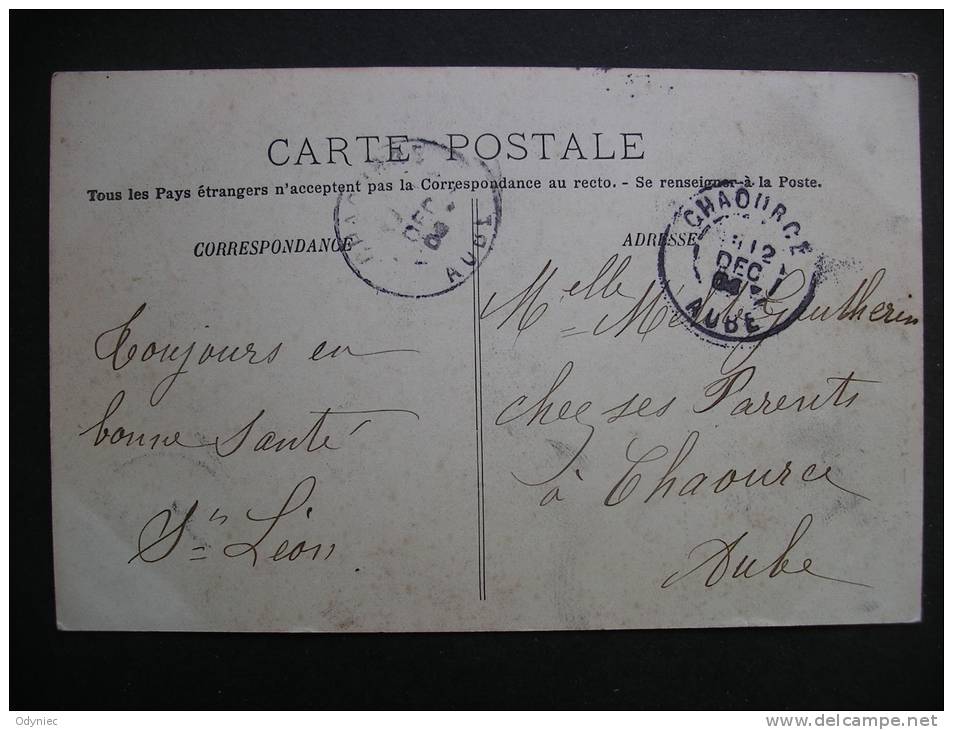 CARTE POSTALE
Tous les Pays étrangers n'acceptent pas la Correspondance au recto. - Se renseigner à la Poste.
CORRESPONDANCE
ADRESSE
CHAOURCE
12
DEC
AUBE
DEC
AUBE
Toujours en
bonne Santé
Léon
Melle Gautherin
chez ses Parents
à Chaource
Aube
Odyniec
www.delcampe.net